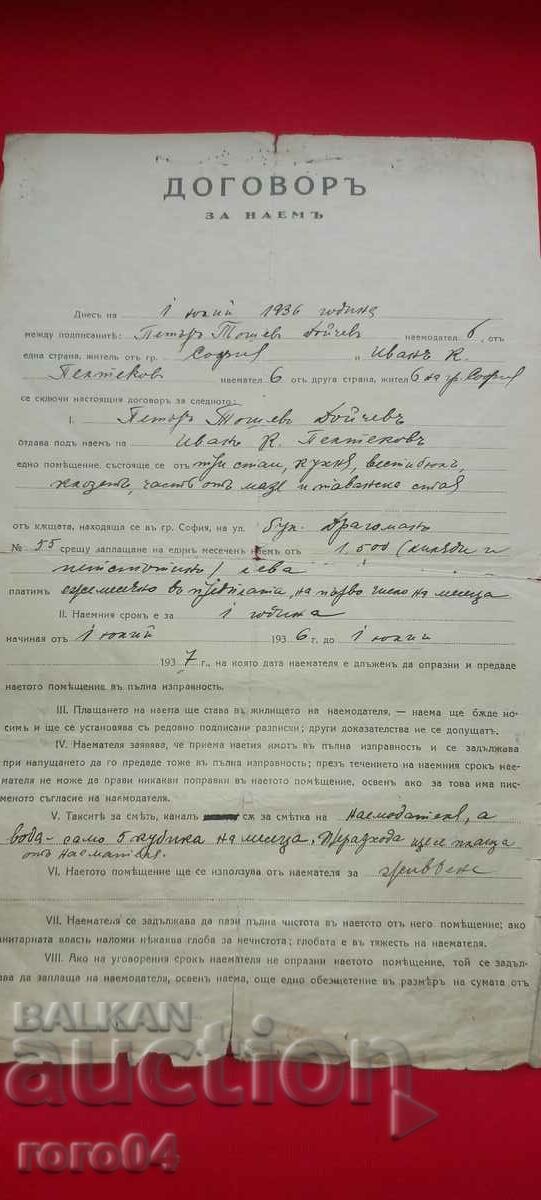 ДОГОВОРЪ
ЗА НАЕМЪ
Днесъ на 1 юлий 1936 година
между подписанитѣ: Петъръ Тошев Дойчев наемодател б, отъ
една страна, жител отъ гр. София и Иванъ К.
Пелтеков наемател б отъ друга страна, жител б на гр. София
се сключи настоящия договоръ за следното:
I. Петъръ Тошев Дойчевъ
отдава подъ наемъ на Иванъ К. Пелтековъ
едно помѣщение, състояще се отъ три стаи, кухня, вестибюлъ,
клозетъ, часть отъ мазе и таванска стая
отъ кѫщата, находяща се въ гр. София, на ул. бул. Драгоманъ
№ 55 срещу заплащане на единъ месеченъ наемъ отъ 1.500 (хиляди и
петстотинъ) лева
платимъ ежемесечно въ предплата, на първо число на месеца
II. Наемния срокъ е за 1 година
начиная отъ 1 юлий 1936 г. до 1 юлий
1937 г., на която дата наемателя е длъженъ да опразни и предаде
наетото помѣщение въ пълна изправность.
III. Плащането на наема ще става въ жилището на наемодателя, — наема ще бѫде но-
симъ и ще се установява съ редовно подписани разписки; други доказателства не се допущатъ.
IV. Наемателя заявява, че приема наетия имотъ въ пълна изправность и се задължава
при напущането да го предаде тоже въ пълна изправность; презъ течението на наемния срокъ нае-
мателя не може да прави никакви поправки въ наетото помѣщение, освенъ ако за това има пис-
меното съгласие на наемодателя.
V. Таксите за смѣть, каналъ сѫ за смѣтка на наемодателя, а
вода - само 5 кубика на месеца. Преразхода ще се плаща
отъ наемателя.
VI. Наетото помѣщение ще се използува отъ наемателя за живѣене
VII. Наемателя се задължава да пази пълна чистота въ наетото отъ него помѣщение; ако
санитарната власть наложи нѣкаква глоба за нечистота; глобата е въ тяжесть на наемателя.
VIII. Ако на уговорения срокъ наемателя не опразни наетото помѣщение, той се задъл-
жава да заплаща на наемодателя, освенъ наема, още едно обезщетение въ размѣръ на сумата отъ
BALKAN
auction
roro04